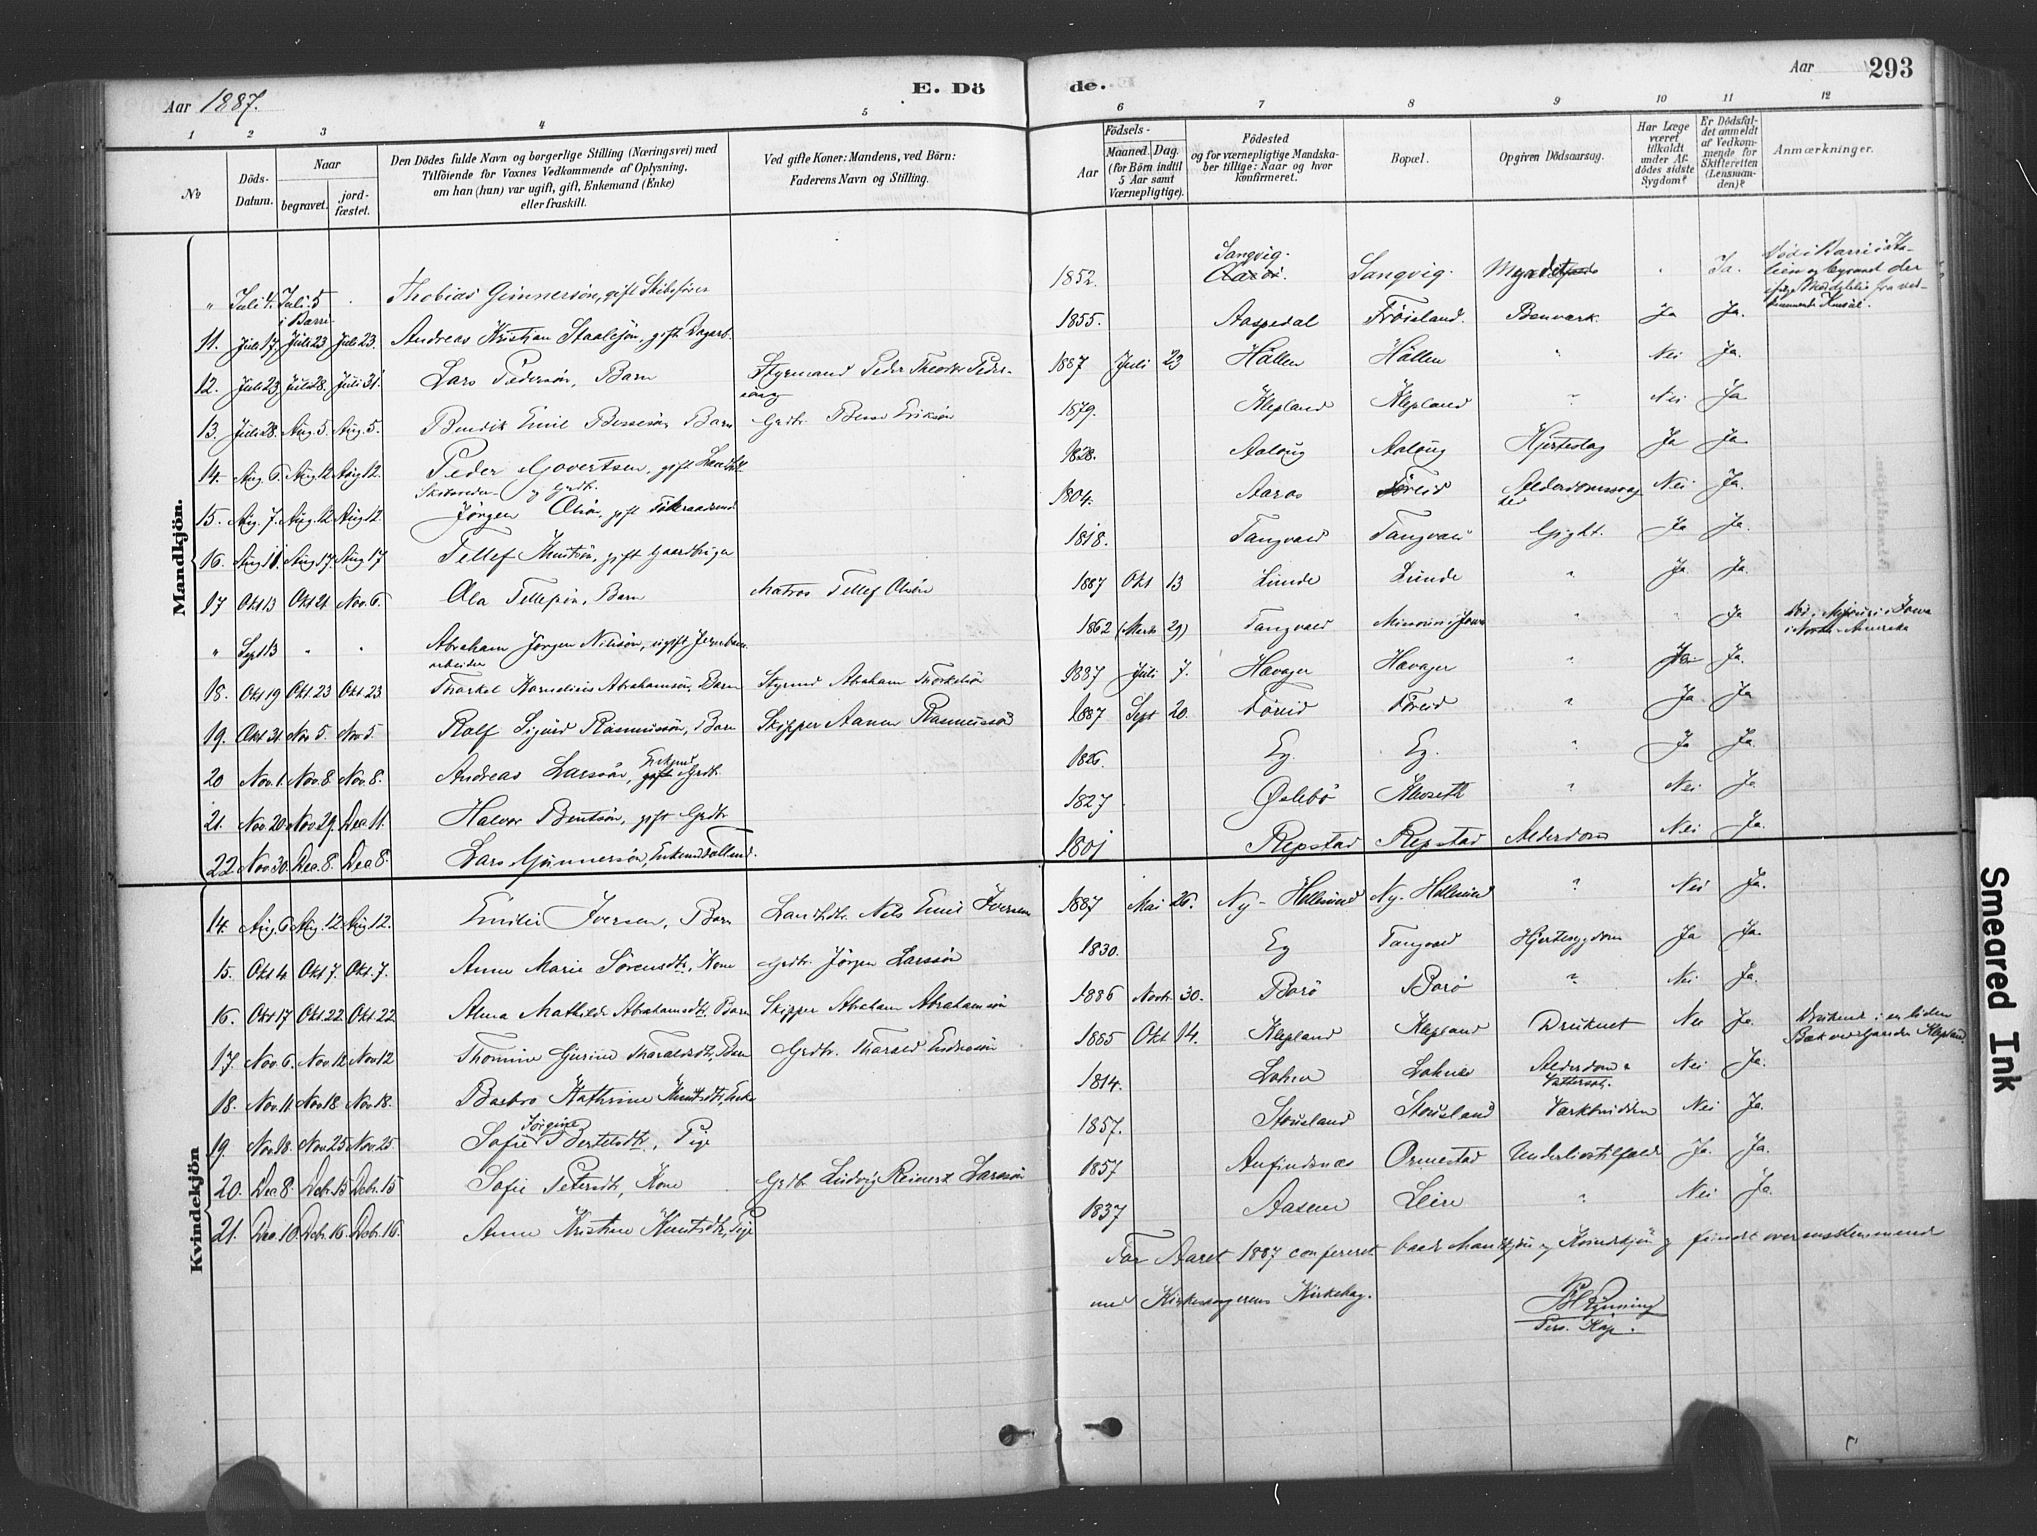 Aar 1887. E. Dö de. Aar 293
1 2 3 4 5 6 7 8 9 10 11 12
№
Döds-Datum.
Naar
begravet.
jord-fæstet.
Den Dödes fulde Navn og borgerlige Stilling (Næringsvei) med
Tilföiende for Voxnes Vedkommende af Oplysning,
om han (hun) var ugift, gift, Enkemand (Enke)
eller fraskilt.
Ved gifte Koner: Mandens, ved Börn:
Faderens Navn og Stilling.
Födsels-
Aar
Maaned. Dag.
(for Börn indtil
5 Aar samt
Værnepligtige).
Födested
og for værnepligtige Mandska-
ber tillige: Naar og hvor
konfirmeret.
Bopæl.
Opgiven Dödsaarsag.
Har Læge
været
tilkaldt
under Af-
dödes sidste
Sygdom?
Er Dödsfal-
det anmeldt
af Vedkom-
mende for
Skifteretten
(Lensman-
den)?
Anmærkninger.
Mandkjön.
" Juli 4. Juli 5 i Barri Thobias Gunnersön, gift Skibsfører 1852. Sangvig. Sangvig. " Ja. Død i Barri i Ita-
lien og begravet der
11. Juli 17. Juli 23 Juli 23. Andreas Kristian Staalesøn, gift Dagarb. 1855. Aaspedal Frøisland. Benværk. Ja Ja.
12. Juli 23 Juli 28. Juli 31. Lars Pedersön, Barn Styrmand Peder Theodor Peder-
sen 1887 Juli 23 Hállen Hállen " Nei Ja.
13. Juli 28. Aug. 5. Aug. 5. Bendik Emil Barn Grdbr. Eriksön 1879. Klepland Klepland " Nei Ja
14. Aug. 6. Aug. 12 Aug 12. Peder Govertsen, gift
Skibsreder og Grdbr. 1828. Hjerteslag Ja Ja
15. Aug. 7. Aug. 12 Aug 12. Jørgen Olsön, gift 1804. Aaros Føreid Alderdomssvag
hed Nei Ja.
16. Aug 11. Aug 17. Aug 17 Tellef Knutsön, gift Gaardbruger 1818. Tangvald Tangvald Gight. Ja Ja.
17 Okt 13 Okt 21. Nov. 6. Ola Tellefsön, Barn Matros Tellef Olsön 1887 Okt 13 Lunde Lunde " Ja Ja.
" Sept 13 " " Abraham Jørgen Nilsön, ugift Jernbane
arbeider 1862 (Marts 29) Tangvald " " Ja i North-Amerika
18. Okt 19 Okt. 23 Okt. 23 Thorkel Kornelius Abrahamsön, Barn Styrmd Abraham Thorkelsön 1887 Juli 7. Hævager Hævager " Ja Ja.
19. Okt 31. Nov 5. Nov 5. Rolf Sigurd Rasmussön, Barn Skipper Aanen Rasmussön 1887 Sept 20. Føreid Føreid " Ja Ja
20 Nov. 1. Nov. 8. Nov. 8. Andreas Larssön, Enkemd Grdbr. 1826. Eg. Eg. " Ja Ja.
21. Nov. 20. Nov 29. Dec 11. Halvor Bentsön, gift Grdbr 1827 Øslebø " Nei Ja
22 Nov. 30. Dec. 8. Dec 8. Lars Gunnersön, Enkemd 1801 Repstad Repstad Alderdom Nei Ja.
Kvindekjön
14. Aug. 6 Aug. 12. Aug. 12. Emilie Iversen, Barn Nels Emil Iversen 1887 Mai 26. Ny-Hellesund Ny-Hellesund " Nei Ja.
15. Okt 4. Okt. 7. Okt. 7. Anne Marie Sörensdtr, Kone Grdbr. Jörgen Larssön 1830. Eg Tangvald Hjertesygdom Ja Ja.
16. Okt 17 Okt. 22 Okt 22 Alma Mathilde Abrahamsdtr Barn Skipper Abraham Abrahamsön 1886 Novbr. 30. Borø Borø " Nei Ja.
17. Nov. 6. Nov 12 Nov 12 Thomine Gurine Tharaldsdtr, Barn Grdbr. Tharald 1885 Okt 14. Klepland Klepland Druknet Nei Ja. Druknet i en liden
Bæk ved Gaarden Klepland.
18. Nov. 11. Nov. 18 Nov. 18. Barbro Kathrine Knutsdtr, Enke 1814. Alderdom Nei Ja.
19. Nov. 18. Nov. 25 Nov. 25. Sofie Jörgine Bertelsdtr, Pige 1857. Stousland Stousland Nei Ja.
20. Dec 8 Decbr. 15 Decbr. 15 Sofie Petersdtr, Kone Grdbr. Ludvig Reinert Larssön 1857 Aufindsnes Ormestad Underlivstilfælde Ja. Ja.
21. Dec. 10. Decbr. 16. Decbr. 16. Anne Kristine Knutsdtr, Pige 1837 Aasene Leire " Nei Ja.
For Aaret 1887 confereret baade Mandkjön og Kvindekjön og fundet overensstemmende
med Kirkesangerens Kirkebog.
Pers. Kap.
Smeared Ink